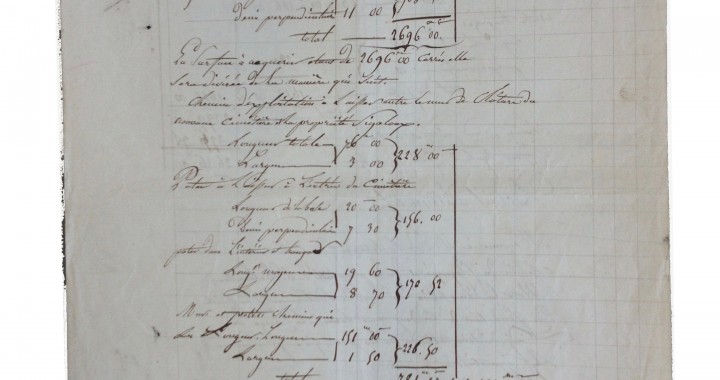 demi perpendiculaire 11 00
total 2696 00.
La Surface à acquérir étant de 2696 m 00 carrés elle
Sera divisée de la manière qui Suit.
Chemin d'exploitation à Laisser entre le mur de Clôture du
nouveau cimetière et la propriété
Longueur totale 76 00
Largeur 3 00 } 228 m 00
à Laisser à L'entrée du Cimetière
Longueur de la base 20 00
demi perpendiculaire 7 80 } 156. 00
dans L'intérieur et
Long.r moyenne 19 60
Largeur 8 70 } 170 52
Murs et petits Chemins qui
Longueur 151 m 00
Largeur 1 50 } 226. 50
total